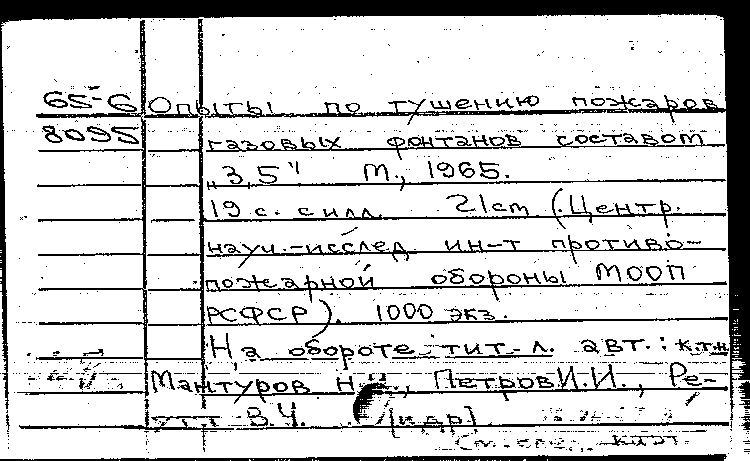 65-6 Опыты по тушению пожаров
8095 газовых фонтанов составом
„3,5" М., 1965.
19 с. с илл. 21 см (Центр.
науч.-исслед. ин-т противо-
пожарной обороны МООП
РСФСР). 1000 экз.
На обороте тит. л. авт.: к.т.н.
Мантуров Н.И., Петров И.И., Ре-
утт В.Ч. [и др]
См. след. карт.